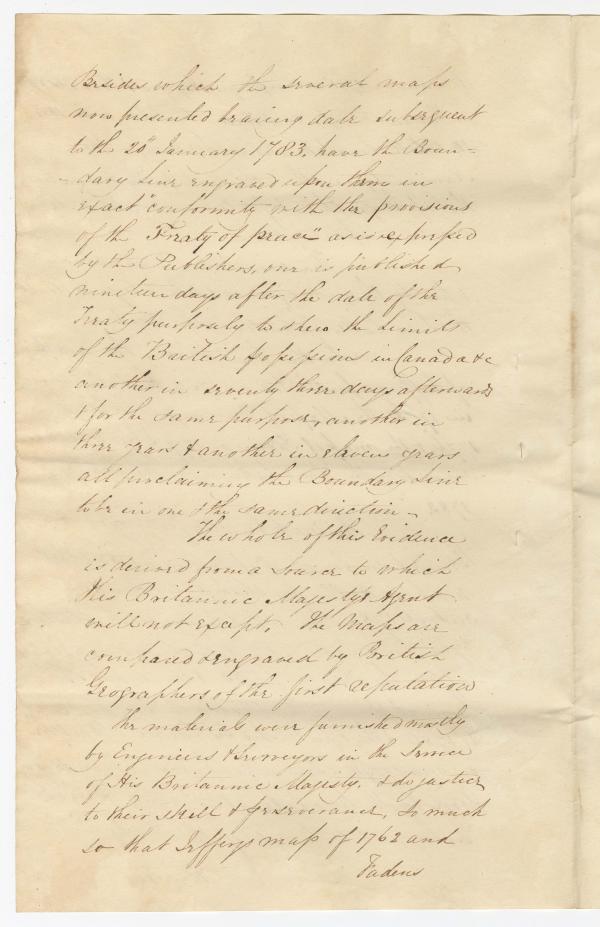 Besides which the several maps
now presented bearing date subsequent
to the 20th January 1783, have the Boun-
-dary Line engraved upon them in
exact "conformity with the provisions
of the "Treaty of peace" as is expressed
by the Publishers, one is published
nineteen days after the date of the
Treaty purposely to shew the Limits
of the British possessions in Canada &c
another in seventy three days afterwards
& for the same purpose, another in
three years & another in elaven years
all proclaiming the Boundary Line
to be in one & the same direction -
The whole of this Evidence
is derived from a source to which
His Britannic Majestys Agent
will not except. The Maps are
compared & engraved by British
Geographers of the first reputation
The materials were furnished mostly
by Engineers & Surveyors in the Service
of His Britannic Majesty. & do justice
to their skill & perseverance. So much
so that Jefferys map of 1762 and
Fadens